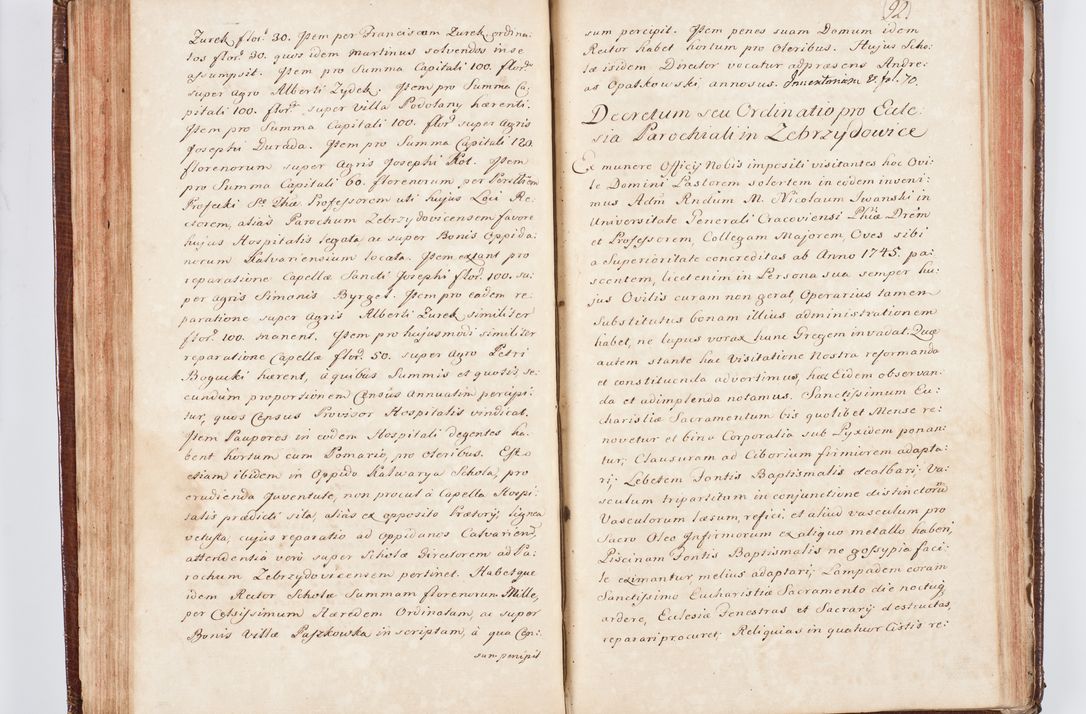 Zurek flor: 30. Item per Franciscum Zurek ordina:
tos flor: 30. quos idem Martinus solvendos in se
assumpsit. Item pro Summa Capitali 100. flor:
super agro Alberti Zydek. Item pro Summa Ca:
pitali 100. flor: super villa Podolany hærenti.
Item pro Summa Capitali 100. flor: super agris
Josephi Durada. Item pro Summa Capitali 120.
florenorum super Agris Josephi Kot. Item
pro Summa Capitali 60. florenorum per
Professorem uti hujus Loci Re:
ctorem, alias Parochum Zebrzydovicensem favore
hujus Hospitalis legata ac super Bonis Oppida:
norum Kalvariensium locata. Item extant pro
reparatione Capellæ Sancti Josephi flor: 100. su:
per agris Simonis Byrges. Item pro eadem re:
paratione super agris Alberti Zurek similiter
flor: 100. manent. Item pro hujusmodi similiter
reparatione Capellæ flor: 50. super agro Petri
Bogucki hærent, à quibus Summis et quotis se:
cundum proportionem Census Annuatim percipi:
tur, quos Census Provisor Hospitalis vindicat.
Item Pauperes in eodem Hospitali degentes ha:
bent hortum cum Pomario, pro oleribus. Est
etiam ibidem in Oppido Kalwarya Schola, pro
erudienda Juventute, non procul à Capella Hospi:
talis prædicti sita, alias ex opposito Prætorij, lignea
vetusta, cujus reparatio ad oppidanos Calvarien:
attendentia verò super Scholæ Directorem ad Pa:
rochum Zebrzydovicensem pertinet. Habetque
idem Rector Scholæ Summam florenorum Mille,
per Celsissimum Hæredem Ordinatam, ac super
Bonis Villæ Paszkowska inscriptam, à qua Cen:
sum percipit
(92)
sum percipit. Item penes suam Domum idem
Rector habet hortum pro Oleribus. Hujus Scho:
læ isidem Director vocatur adpræsens Andre:
as Opatkowski annosus. Inventarium V. fol. 70.
Decretum seu Ordinatio pro Eccle:
sia Parochiali in Zebrzydowice
Ex munere Officij Nobis impositi visitantes hoc Ovi:
le Domini Pastorem solertem in eodem inveni:
mus Adm Rndum M. Nicolaum Iwanski in
Universitate Generali Cracoviensi Phiæ Drem
et Professorem, Collegam Majorem, Oves sibi
a Superioritate concreditas ab Anno 1745. pa:
scentem, licet enim in Persona sua semper hu:
jus Ovilis curam non gerat, Operarius tamen
Substitutus bonam illius administrationem
habet, ne lupus vorax hunc Gregem invadat. Quæ
autem stante hac Visitatione Nostra reformanda
et constituenda advertimus, hæc Eidem observan:
da et adimplenda notamus. Sanctissimum Eu:
charistiæ Sacramentum bis quolibet Mense re:
novetur et bina Corporalia sub Pyxidem ponan:
tur; Clausuram ad Ciborium firmiorem adapta:
ri; Lebetem Fontis Baptismalis dealbari; Va:
sculum tripartitum in conjunctione distinctorũ
Vasculorum læsum, refici; et aliud vasculum pro
Sacro Oleo Infirmorum ex aliquo metallo haberi,
Piscinam Fontis Baptismalis ne gossypia faci:
le eximantur melius adaptari; Lampadem coram
Sanctissimo Eucharistiæ Sacramento die noctuq́
ardere, Ecclesia Fenestras et Sacrarij destructas,
reparari procuret; Reliquias in quatuor Cistis re: